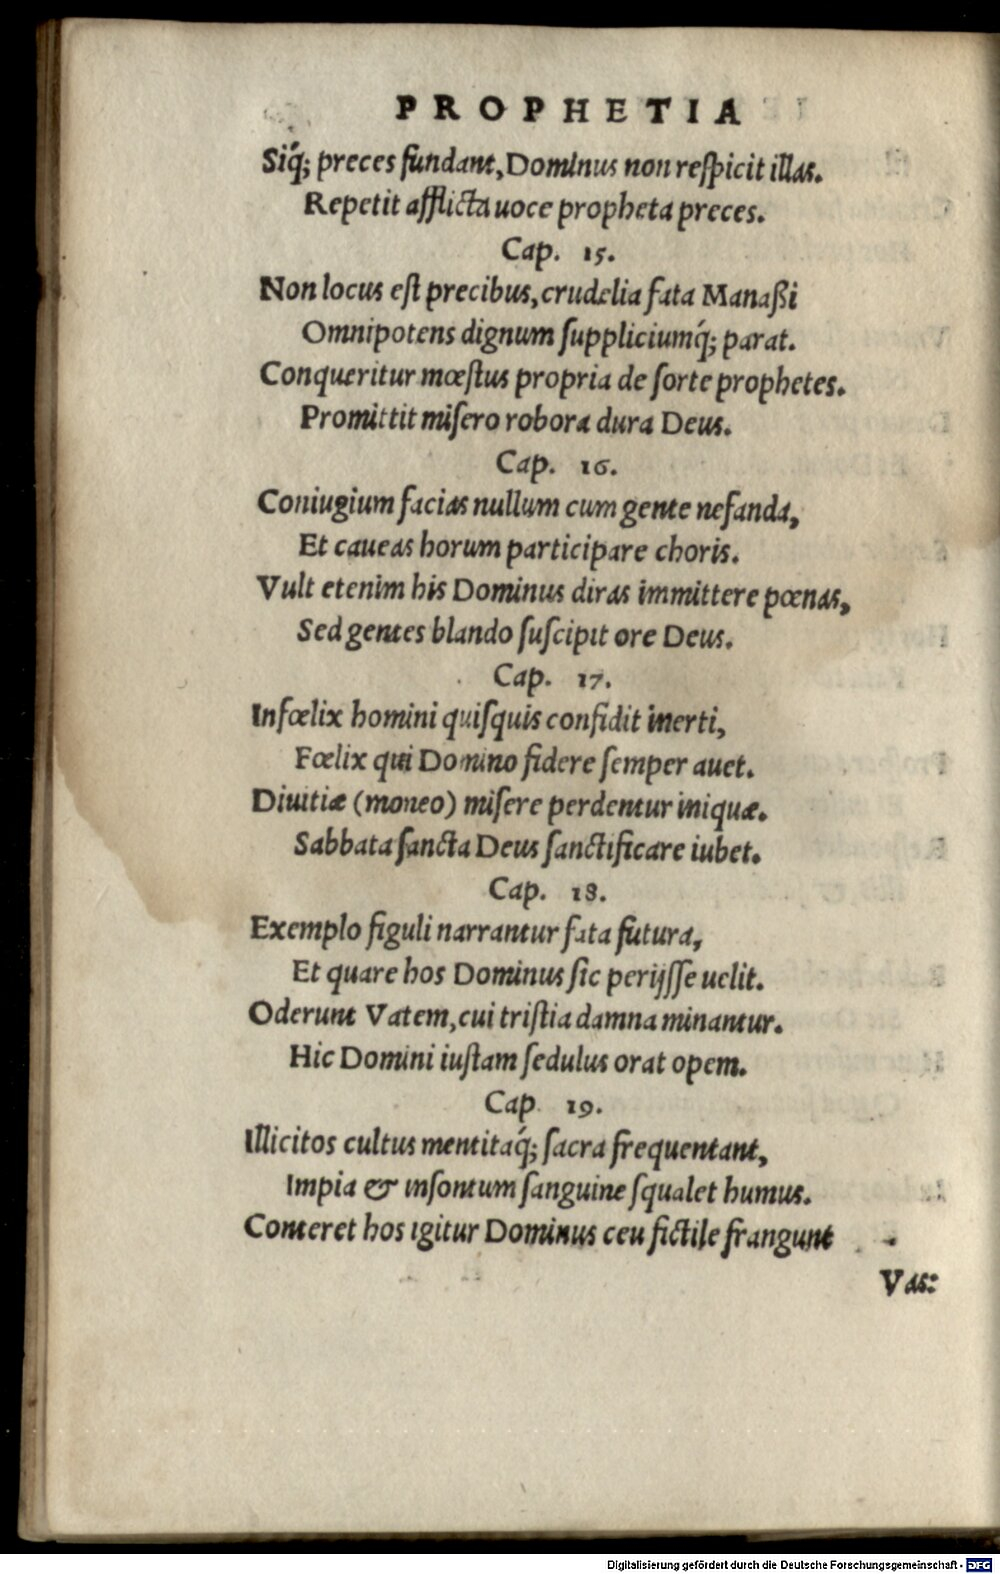 PROPHETIA
Siq́; preces fundant, Dominus non reſpicit illas.
Repetit afflicta uoce propheta preces.
Cap. 15.
Non locus eſt precibus, crudelia fata Manaßi
Omnipotens dignum ſuppliciumq́; parat.
Conqueritur mœſtus propria de ſorte prophetes.
Promittit miſero robora dura Deus.
Cap. 16.
Coniugium facias nullum cum gente nefanda,
Et caueas horum participare choris.
Vult etenim his Dominus diras immittere pœnas,
Sed gentes blando ſuſcipit ore Deus.
Cap. 17.
Infœlix homini quiſquis confidit inerti,
Fœlix qui Domino fidere ſemper auet.
Diuitiæ (moneo) miſere perdentur iniquæ.
Sabbata ſancta Deus ſanctificare iubet.
Cap. 18.
Exemplo figuli narrantur fata futura,
Et quare hos Dominus ſic perijſſe uelit.
Oderunt Vatem, cui triſtia damna minantur.
Hic Domini iuſtam ſedulus orat opem.
Cap 19.
Illicitos cultus mentitaq́; ſacra frequentant,
Impia & inſontum ſanguine ſqualet humus.
Conteret hos igitur Dominus ceu fictile frangunt
Vas:
Digitalisierung gefördert durch die Deutsche Forschungsgemeinschaft - DFG